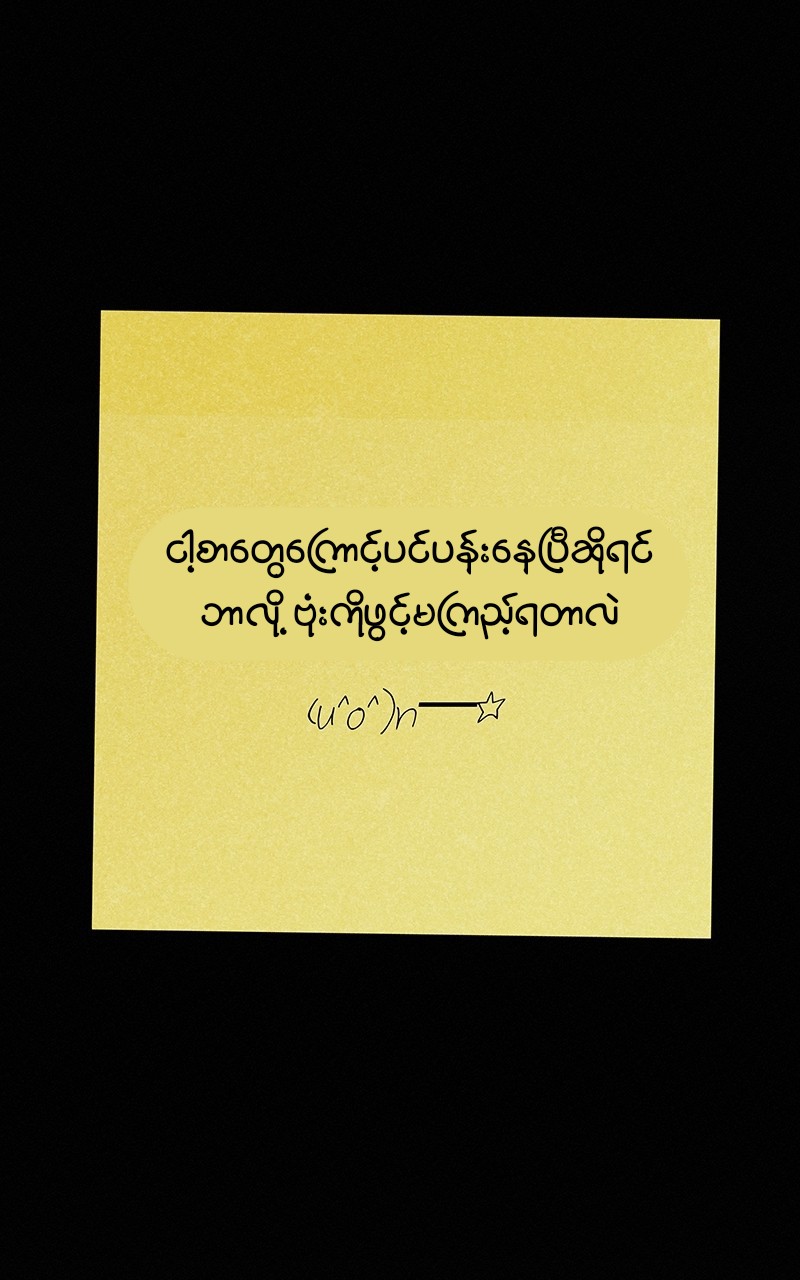 ငါ့စာတွေကြောင့်ပင်ပန်းနေပြီဆိုရင်
ဘာလို့ ဗုံးကိုဖွင့်မကြည့်ရတာလဲ
(u^o^)n━━☆